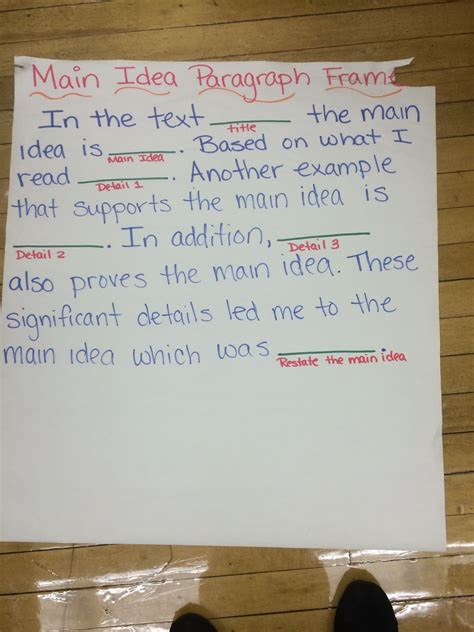 Main Idea Paragraph Frame
In the text ________ the main
title
idea is ________. Based on what I
Main Idea
read ________. Another example
Detail 1
that supports the main idea is
________. In addition, ________
Detail 2 Detail 3
also proves the main idea. These
significant details led me to the
main idea which was ________.
Restate the main idea